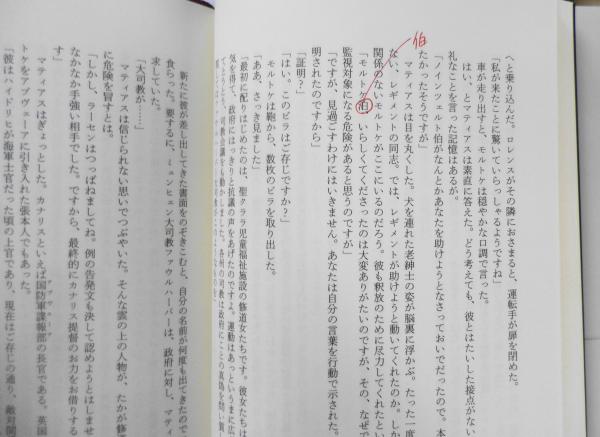 へと乗り込んだ。ロレンスがその隣におさまると、運転手が扉を閉めた。
「私が来たことに驚いていらっしゃるようですね」
車が走り出すと、モルトケは穏やかな口調で言った。
はい、とマティアスは素直に答えた。どう考えても、彼とはたいした接点がない
礼なことを言った記憶はあるが。
「ノインツェルト伯がなんとかあなたを助けようとなさっておいでだったので。本
たかったそうですが」
マティアスは目を丸くした。犬を連れた老紳士の姿が脳裏に浮かぶ。たった一度
ない、レギメントの同志。では、レギメントが助けようと動いてくれたのか。しか
関係のないモルトケがここにいるのだろう。彼も釈放のために尽力してくれたとい
「モルトケ泊、いらしてくださったのは大変ありがたいのですが、その、なぜで
伯
監視対象になる危険があると思うのですが」
「ですが、見過ごすわけにはいきません。あなたは自分の言葉を行動で示された。
明されたのですから」
「証明?」
「はい。このビラはご存じですか?」
モルトケは鞄から、数枚のビラを取り出した。
「ああ、さっき見ました」
「最初に配りはじめたのは、聖クララ児童福祉施設の修道女たちです。彼女たちは
気を得て、政府にはっきりと抗議の声をあげたのですよ。運動はあっというまに広
新たに彼が差し出してきた書面をのぞきこむと、自分の名前が何度も出てきたので
食らった。要するに、ミュンヒェン大司教ファウルハーバーは、政府に対し、マティ
求していた。
「大司教が……」
マティアスは信じられない思いでつぶやいた。そんな雲の上の人物が、たかが修道
に危険を冒すとは。
「しかし、ラーセンはつっぱねましてね。例の告発文も決して認めようとはしませ
なかなか手強い相手でした。ですから、最終的にカナリス提督のお力をお借りする
す」
マティアスはぎょっとした。カナリスといえば国防軍諜報部の長官である。英国
トケをアプヴェーアに引き入れた張本人でもあった。
「彼はハイドリヒが海軍士官だった頃の上官であり、現在はご存じの通り、敵対関